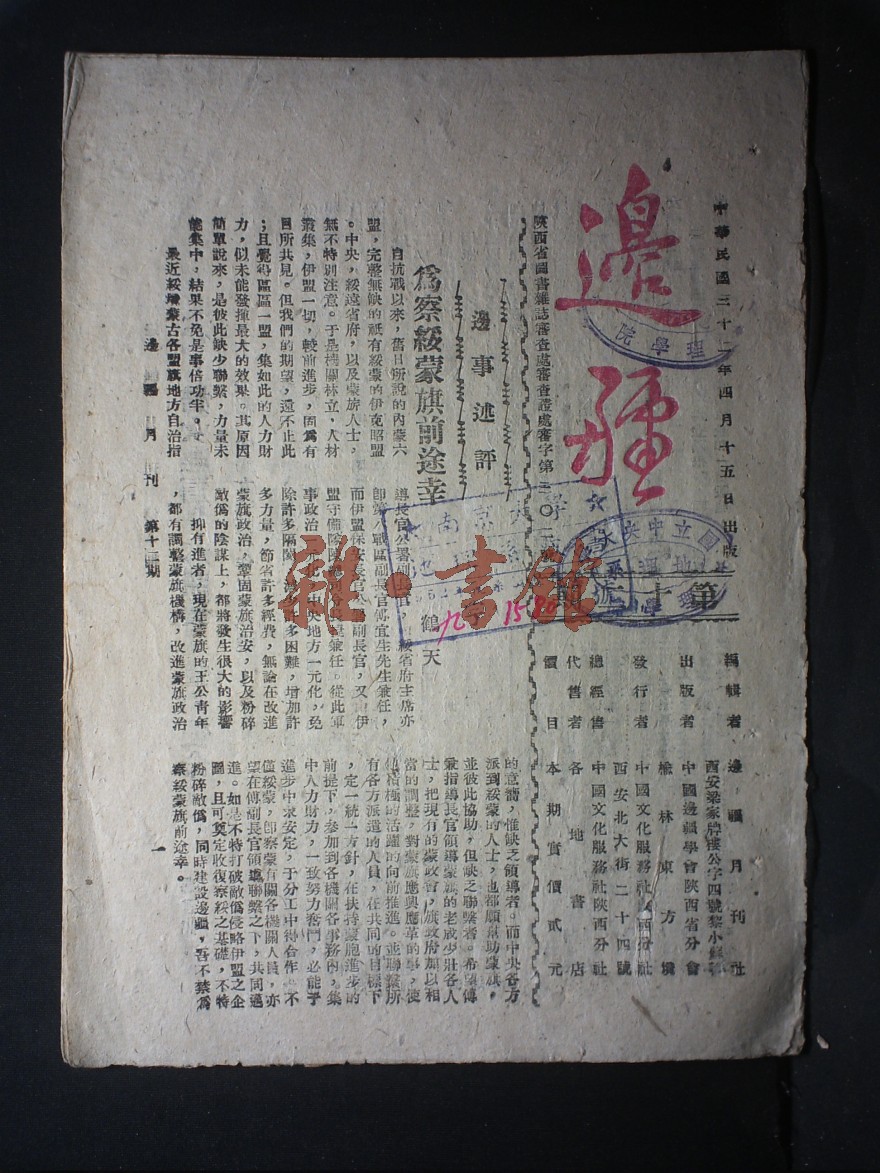 中華民國三十二年四月十五日出版
邊疆
第十二期
編輯者 邊疆月刊社
西安梁家牌樓公字四號黎小蘇
出版者 中國邊疆學會陝西省分會
榆林東方壖
發行者 中國文化服務社陝西分社
西安北大街二十四號
總經售 中國文化服務社陝西分社
代售者 各地書店
價目 本期實價貳元
陝西省圖書雜誌審查處審查證處審字第
邊事述評
為察綏蒙旗前途幸
鶴天
自抗戰以來，舊日所說的內蒙六
盟，完整無缺的祇有綏蒙的伊克昭盟
。中央，綏遠省府，以及蒙旗人士，
無不特別注意。于是機關林立，人材
叢集，伊盟一切，較前進步，固為有
目所共見。但我們的期望，還不止此
；且覺得區區一盟，集如此的人力財
力，似未能發揮最大的效果。其原因
簡單說來，是彼此缺少聯繫，力量未
能集中，結果不免是事倍功半。
最近綏境蒙古各盟旗地方自治指
導長官公署副長官，綏省府主席亦
即第八戰區副長官傅宜生先生兼任，
而伊盟保安長官公署副長官，又伊
盟守備
兼任。從此軍
事政治一元化，中央地方一元化，免
除許多隔閡，減少許多困難，增加許
多力量，節省許多經費，無論在改進
蒙旗政治，鞏固蒙旗治安，以及粉碎
敵偽的陰謀上，都將發生很大的影響
抑有進者，現在蒙旗的王公青年
，都有調整蒙旗機構，改進蒙旗政治
的意嚮，惟缺乏領導者。而中央各方
派到綏蒙的人士，也都願幫助蒙旗，
並彼此協助，但缺乏聯繫者。希望傅
兼指導長官領導蒙旗的老成少壯各人
士，把現有的蒙政會，旗政府加以相
當的調整，對蒙旗應興應革的事，使
其積極的活躍的向前推進。並聯繫所
有各方派遣的人員，在共同的目標下
，定一統一方針，在扶持蒙胞進步的
前提下，參加到各機關各事務內，集
中人力財力，一致努力奮鬥，必能于
進步中求安定，于分工中得合作。不
僅綏蒙，即察蒙有關各機關人員，亦
望在傅副長官領導聯繫之下，共同邁
進。如是不特打破敵偽侵略伊盟之企
圖，且可奠定收復察綏之基礎，不特
粉碎敵偽，同時建設邊疆，吾不禁為
察綏蒙旗前途幸。
邊疆月刊 第十二期
一
雜·書館